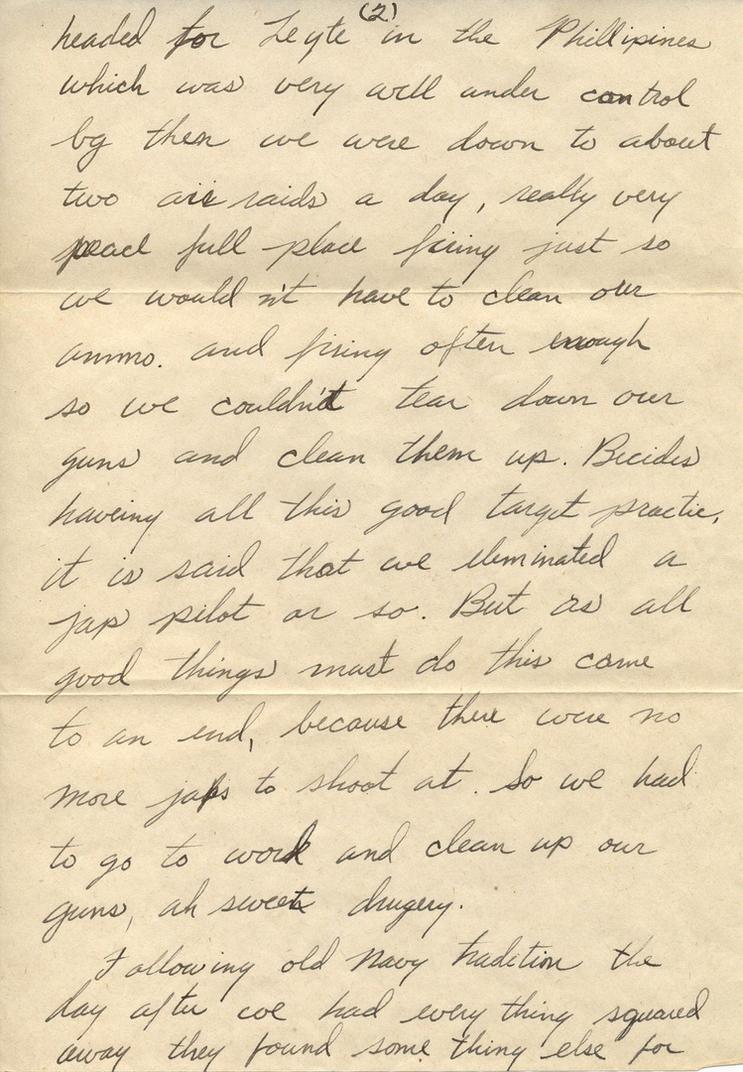 (2)
headed for Leyte in the Phillipines
which was very well under control
by then we were down to about
two air raids a day, really very
peace full place firing just so
we would n't have to clean our
ammo. and firing often enough
so we couldn't tear down our
guns and clean them up. Becides
haveing all this good target practic,
it is said that we eleminated a
jap pilot or so. But as all
good things must do this came
to an end, because there were no
more japs to shoot at. So we had
to go to work and clean up our
guns, ah sweet drugery.
Following old Navy tradition the
day after we had every thing squared
away they found some thing else for